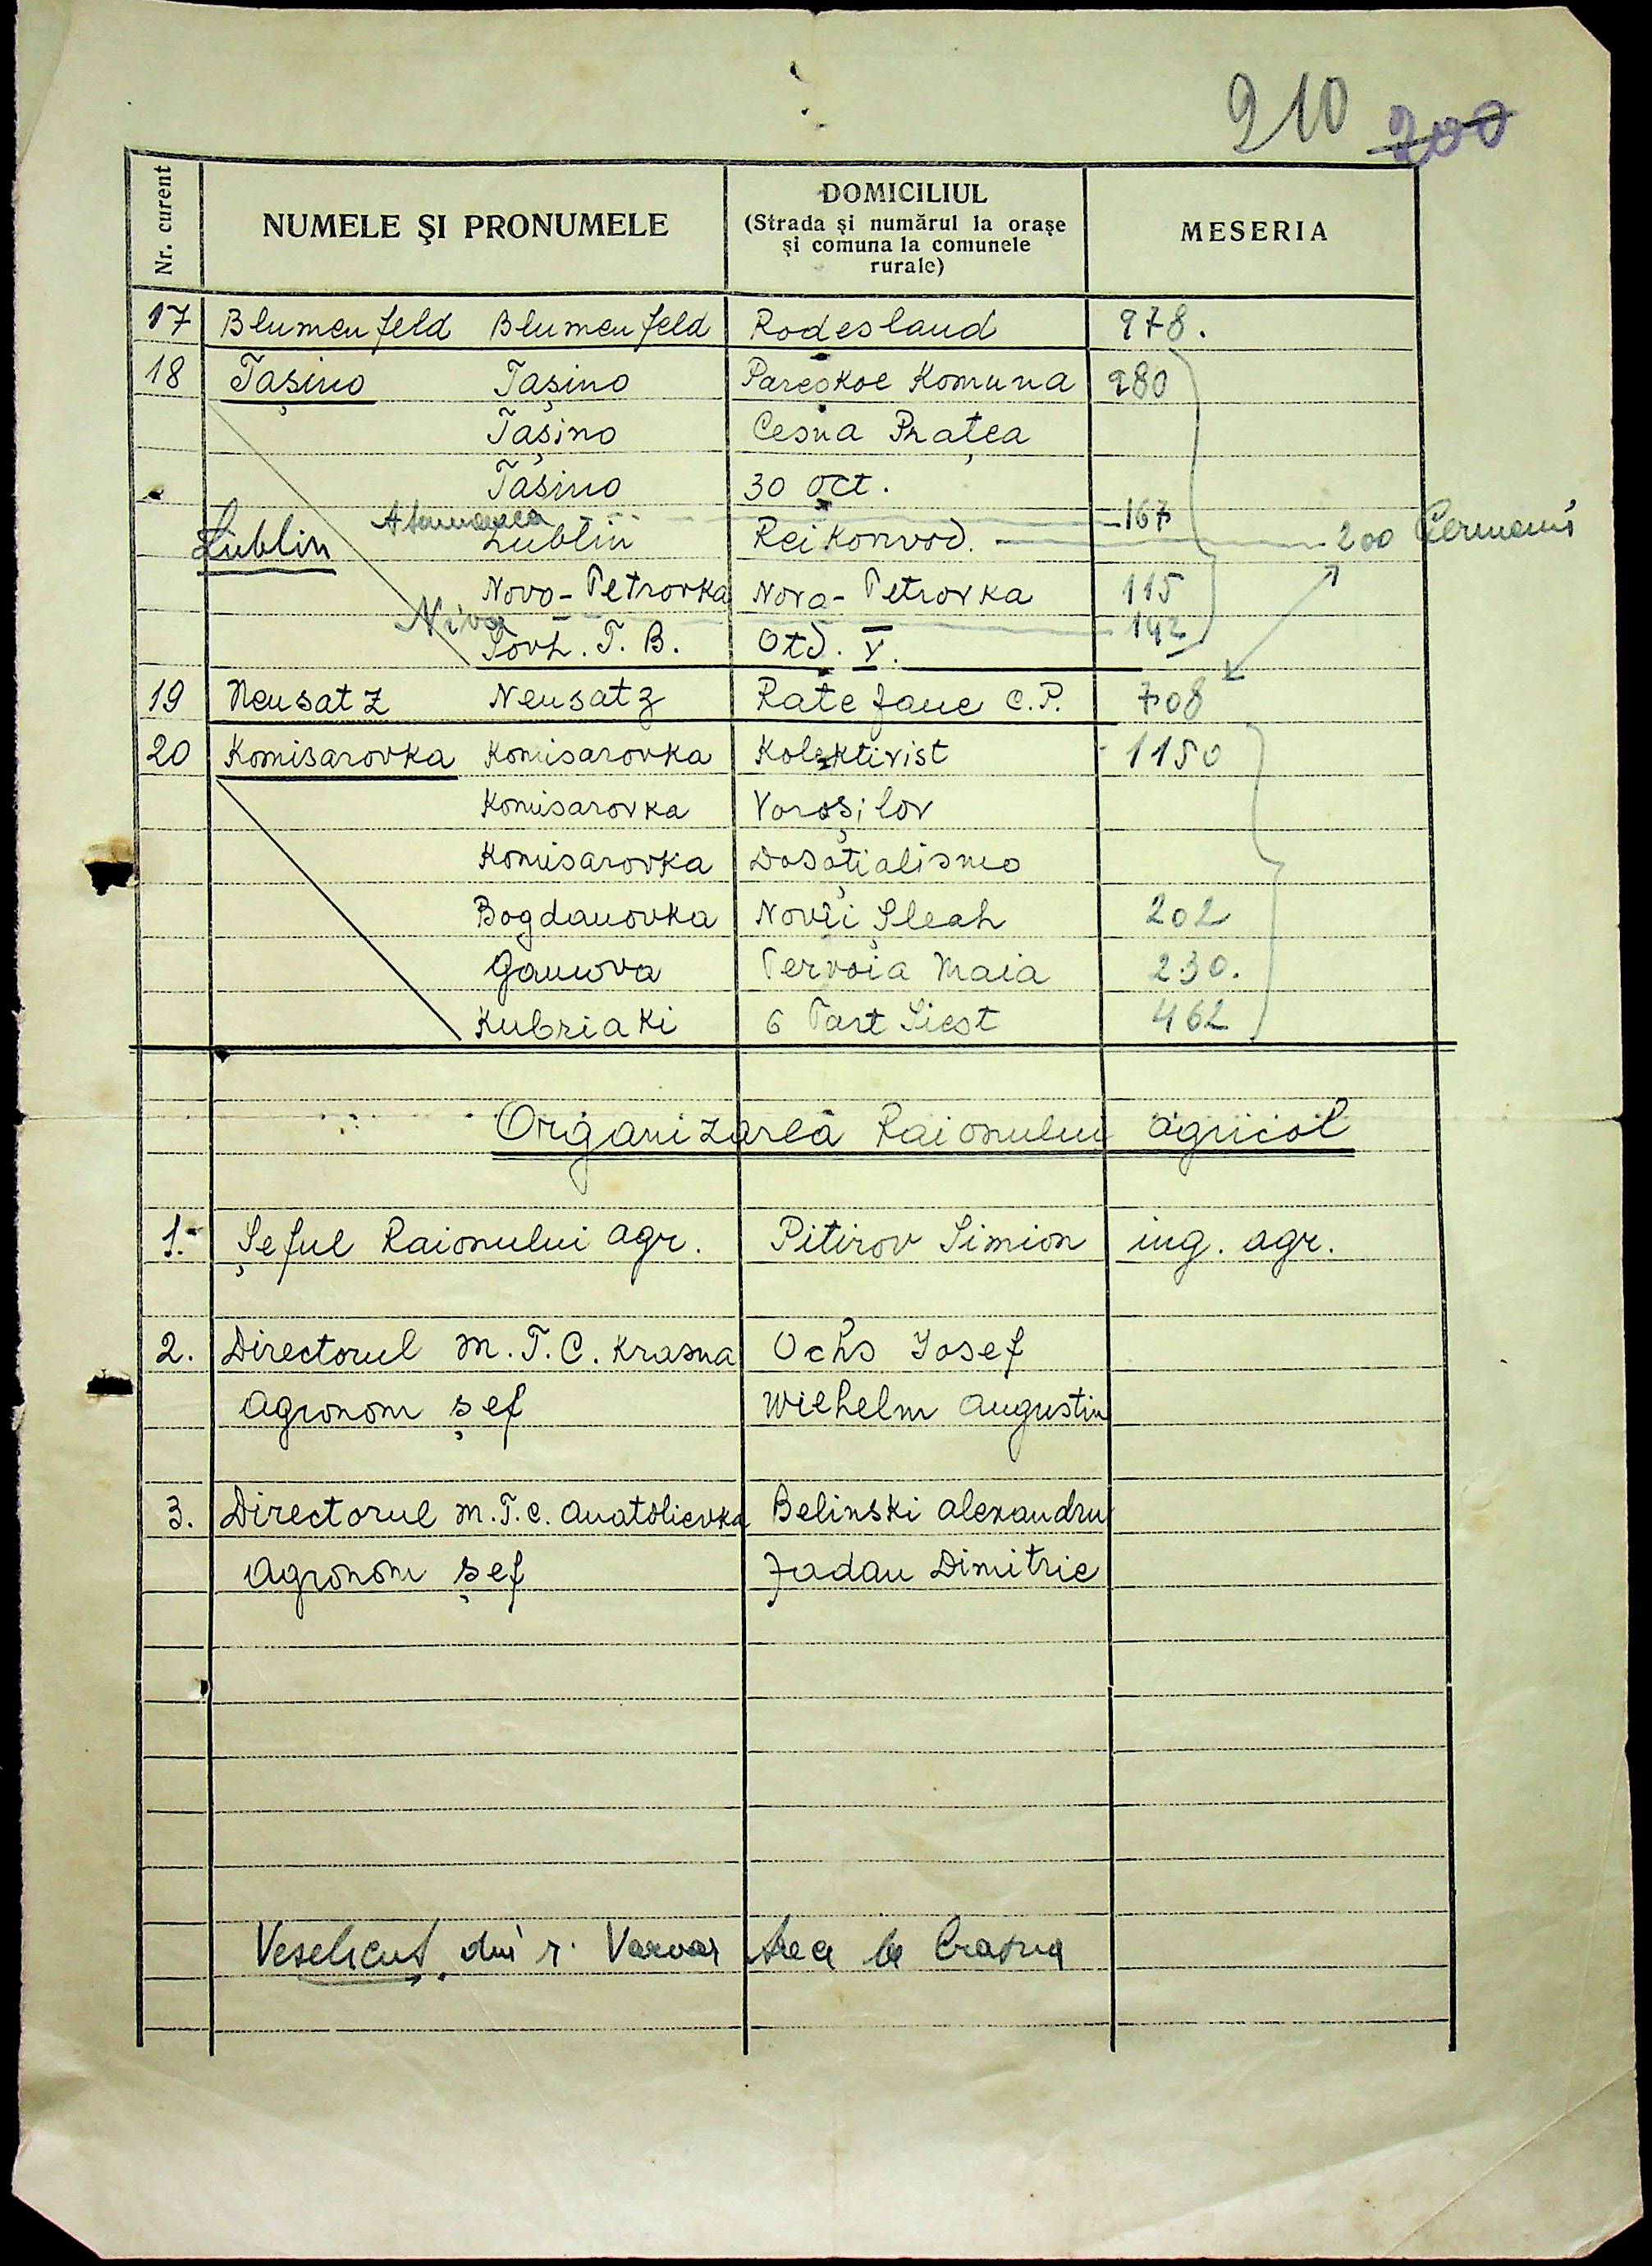 210 200
Nr. curent
NUMELE ŞI PRONUMELE
DOMICILIUL
(Strada şi numărul la oraşe
şi comuna la comunele
rurale)
MESERIA
17 Blumenfeld Blumenfeld Rodesland 978.
18 Tașino Tașino Pareskoe Komuna 280
Tașino Cesna Prațea
Tașino 30 oct.
167
Lublin Lublin Reikonvod. 200 Germani
Novo-Petrovka Nova-Petrovka 115
Niva 142
Sovh. T. B. Otd. V.
19 Neusatz Neusatz Rate Jane C.P. 708
20 Komisarovka Komisarovka Kolektivist 1150
Komisarovka Voroșilov
Komisarovka Dosoțialismo
Bogdanovka Novîi Șleah 202
Ganova Pervoia Maia 230.
Kubriaki 6 Part Siest 462
Organizarea Raionului agricol
1. Șeful Raionului agr. Pitirov Simion ing. agr.
2. Directorul M.T.C. Krasna Ochs Iosef
Agronom șef Wilhelm Augustin
3. Directorul M.T.C. Anatolievka Belinski Alexandru
Agronom șef Jadan Dimitrie
din r. Varvar la Crasna